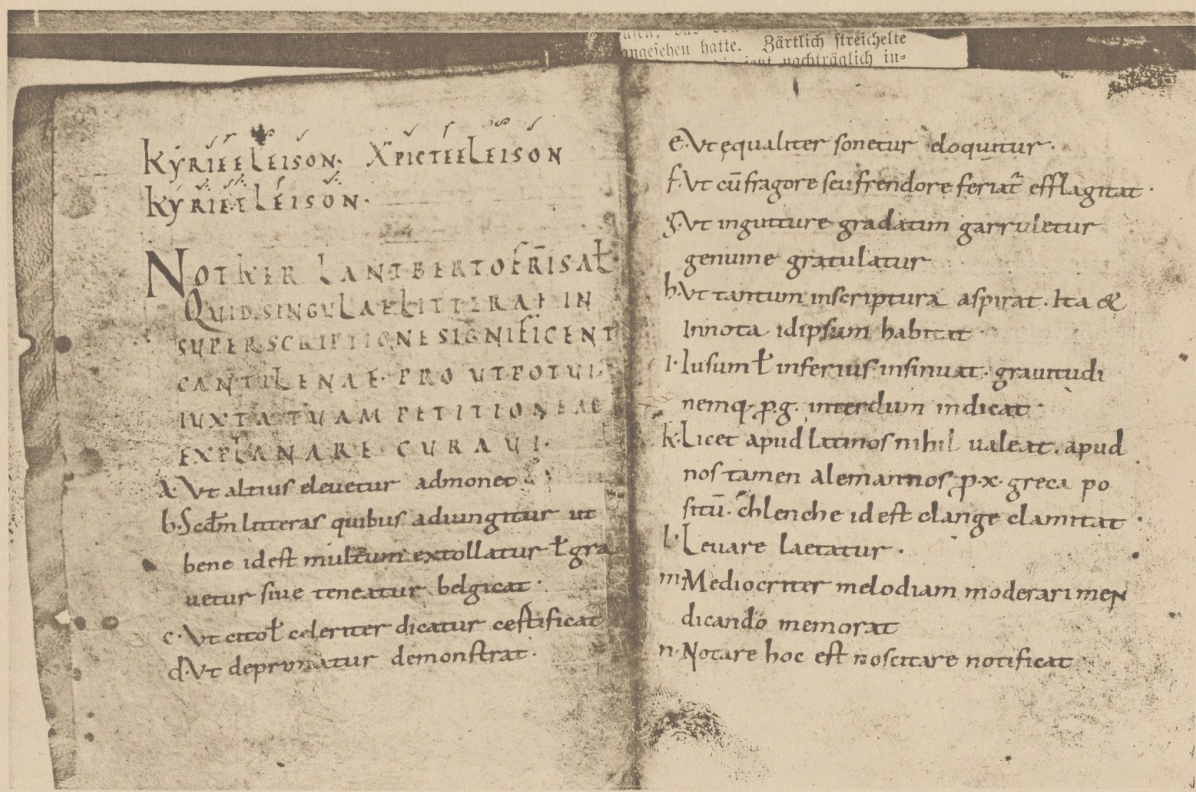 angesehen hatte. Zärtlich streichelte
nachträglich in=
KYRIE ELEISON. XPICTE ELEISON
KYRIE ELEISON.
NOTKER LANTBERTO FR̄I SAŁ
QUID SINGULAE LITTERAE IN
SUPERSCRIPTIONE SIGNIFICENT
CANTILENAE. PRO UT POTUI
IUXTA TUAM PETITIONEM
EXPLANARE CURAVI.
a. Vt altius eleuetur admonet.
b. Scđm litteras quibus adiungitur ut
bene id est multum extollatur ł gra
uetur siue teneatur belgicat.
c. Vt cito ł celeriter dicatur certificat
d. Vt deprimatur demonstrat.
e. Vt equaliter sonetur eloquitur.
f. Vt cū fragore seu frendore feriat̄ efflagitat.
g. Vt in gutture gradatim garruletur
genuine gratulatur
h. Vt tantum in scriptura aspirat. Ita &
in nota id ipsum habitat.
i. Iusum ł inferius insinuat. grauitudi
nemq; p. g. interdum indicat.
k. Licet apud latinos nihil ualeat. apud
nos tamen alemannos p. x. greca po
sitū. chlenche id est clange clamitat.
l. Leuare laetatur.
m. Mediocriter melodiam moderari men
dicando memorat
n. Notare hoc est noscitare notificat